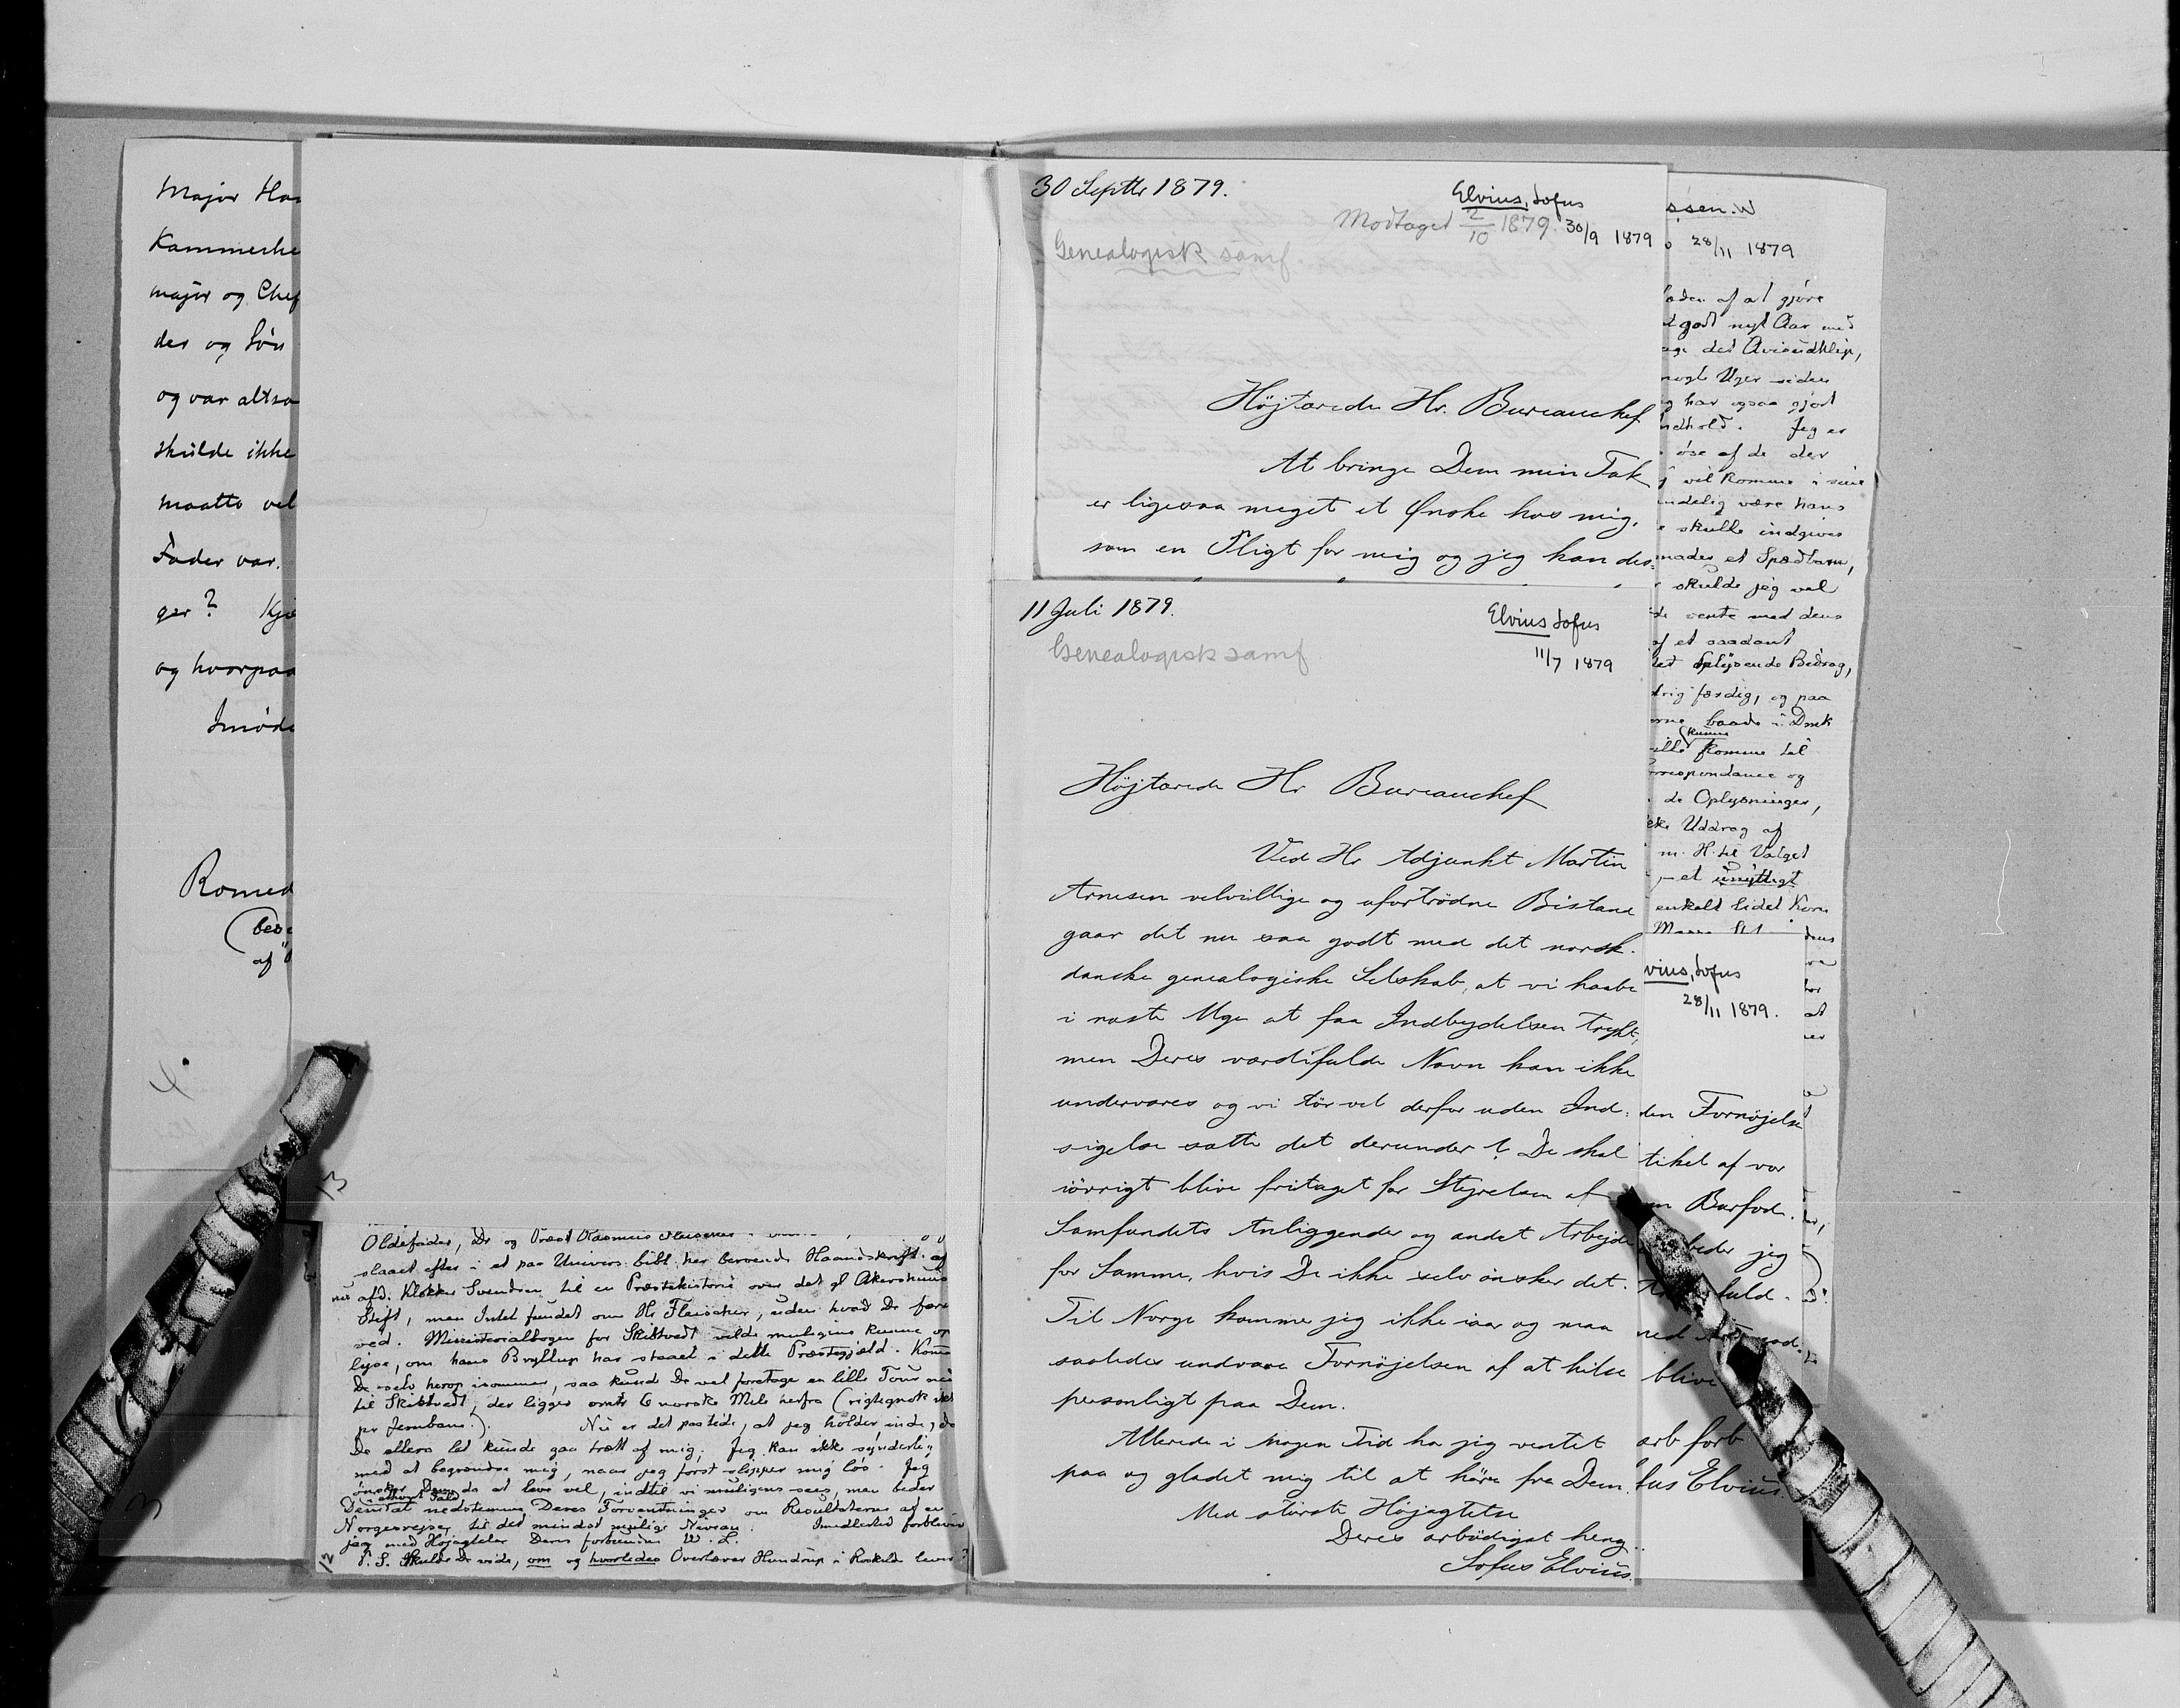 Major Ha
Kammerhe
major og Chef
der og Sön
og var altsa
skulde ikke
maatte vel
Fader var.
ger? Kjö
og hvorpaa
Imöde
Romed
(bes
af
4
13
Oldefader, Dr og Præst Rasmus
slaaet efter i et paa Univers. bibl. her beroende Haandskrift af
nu afd. Klokker Svendsen til en Præstehistorie over det gl Akershuus
Stift, men Intet fundet om Hr Fleischer, uden hvad De före
ved. Ministerialbogen for Skibtvedt vilde muligens kunne op
lyse, om hans Bryllup har staaet i dette Præstegjæld. Kom
De selv herop isommer, saa kunde De vel foretage en lille Tour ned
til Skibtvedt, der ligger omtr 6 norske Mile herfra (rigtignok ikke
pr Jernbane.). Nu er det paatide, at jeg holder inde, da
De ellers let kunde gaa træt af mig. Jeg kan ikke synderlig
med at begrændse mig, naar jeg först slipper mig lös. Jeg
önsker Dem da at leve vel, indtil vi muligens sees, men beder
ethvert Fald
nedstemme Deres Forventninger om Resultaterne af en
Norgesreise til det mindst mulige Niveau. Imidlertid forbliver
jeg med Höjagtelse Deres forbundne W. L.
P. S. Skulde De vide, om og hvorledes Overlærer Hundrup i Roskilde lever?
3
12
30 Septbr 1879.
Elvius, Sofus
Modtaget 2/10 1879. 30/9 1879
Genealogisk samf
Höjtærede Hr. Bureauchef
At bringe Dem min Tak
er ligesaa meget et Ønske hos mig,
som en Pligt for mig og jeg kan des=
11 Juli 1879.
Elvius Sofus
Genealogisk samf
11/7 1879
Höjtærede Hr Bureauchef
Ved Hr Adjunkt Martin
Arnesen velvillige og ufortrödne Bistand
gaar det nu saa godt med det norsk-
danske genealogiske Selskab, at vi haabe
i næste Uge at faa Indbydelsen trykt,
men Deres værdifulde Navn kan ikke
undværes og vi tör vel derfor uden Ind:
sigelse sætte det derunder? De skal
iövrigt blive fritaget for Styrelsen af
Samfundets Anliggender og andet Arbejde
for Samme, hvis De ikke selv önsker det.
Til Norge kommer jeg ikke iaar og maa
saaledes undvære Fornöjelsen af at hilse
personligt paa Dem.
Allerede i nogen Tid har jeg ventet
paa og glædet mig til at höre fra Dem.
Med störste Höjagtelse
Deres ærbödigst heng.
Sofus Elvius.
ssen. W
28/11 1879
oden af at gjöre
godt nyt Aar med
age det Avisudklip,
nogle Uger siden
g har ogsaa gjort
ndhold. Jeg er
öse af de der
vil komme i sine
ndelig være hans
skulle indgives
mades et Spædbarn,
skulde jeg vel
de vente med dens
af et saadant
det oplysende Bidrag,
drig færdig, og paa
erne baade i Druk
kunne
ille komme til
rrespondance og
de Oplysninger,
eke Uddrag af
m. H. til Valget
et unyttigt
enkelt lidet Korn
vius, Sofus
28/11 1879.
den Fornöjelse
tikel af vor
en Barfod.
beder jeg
fuld.
blive
ærb forb
fus Elvius.